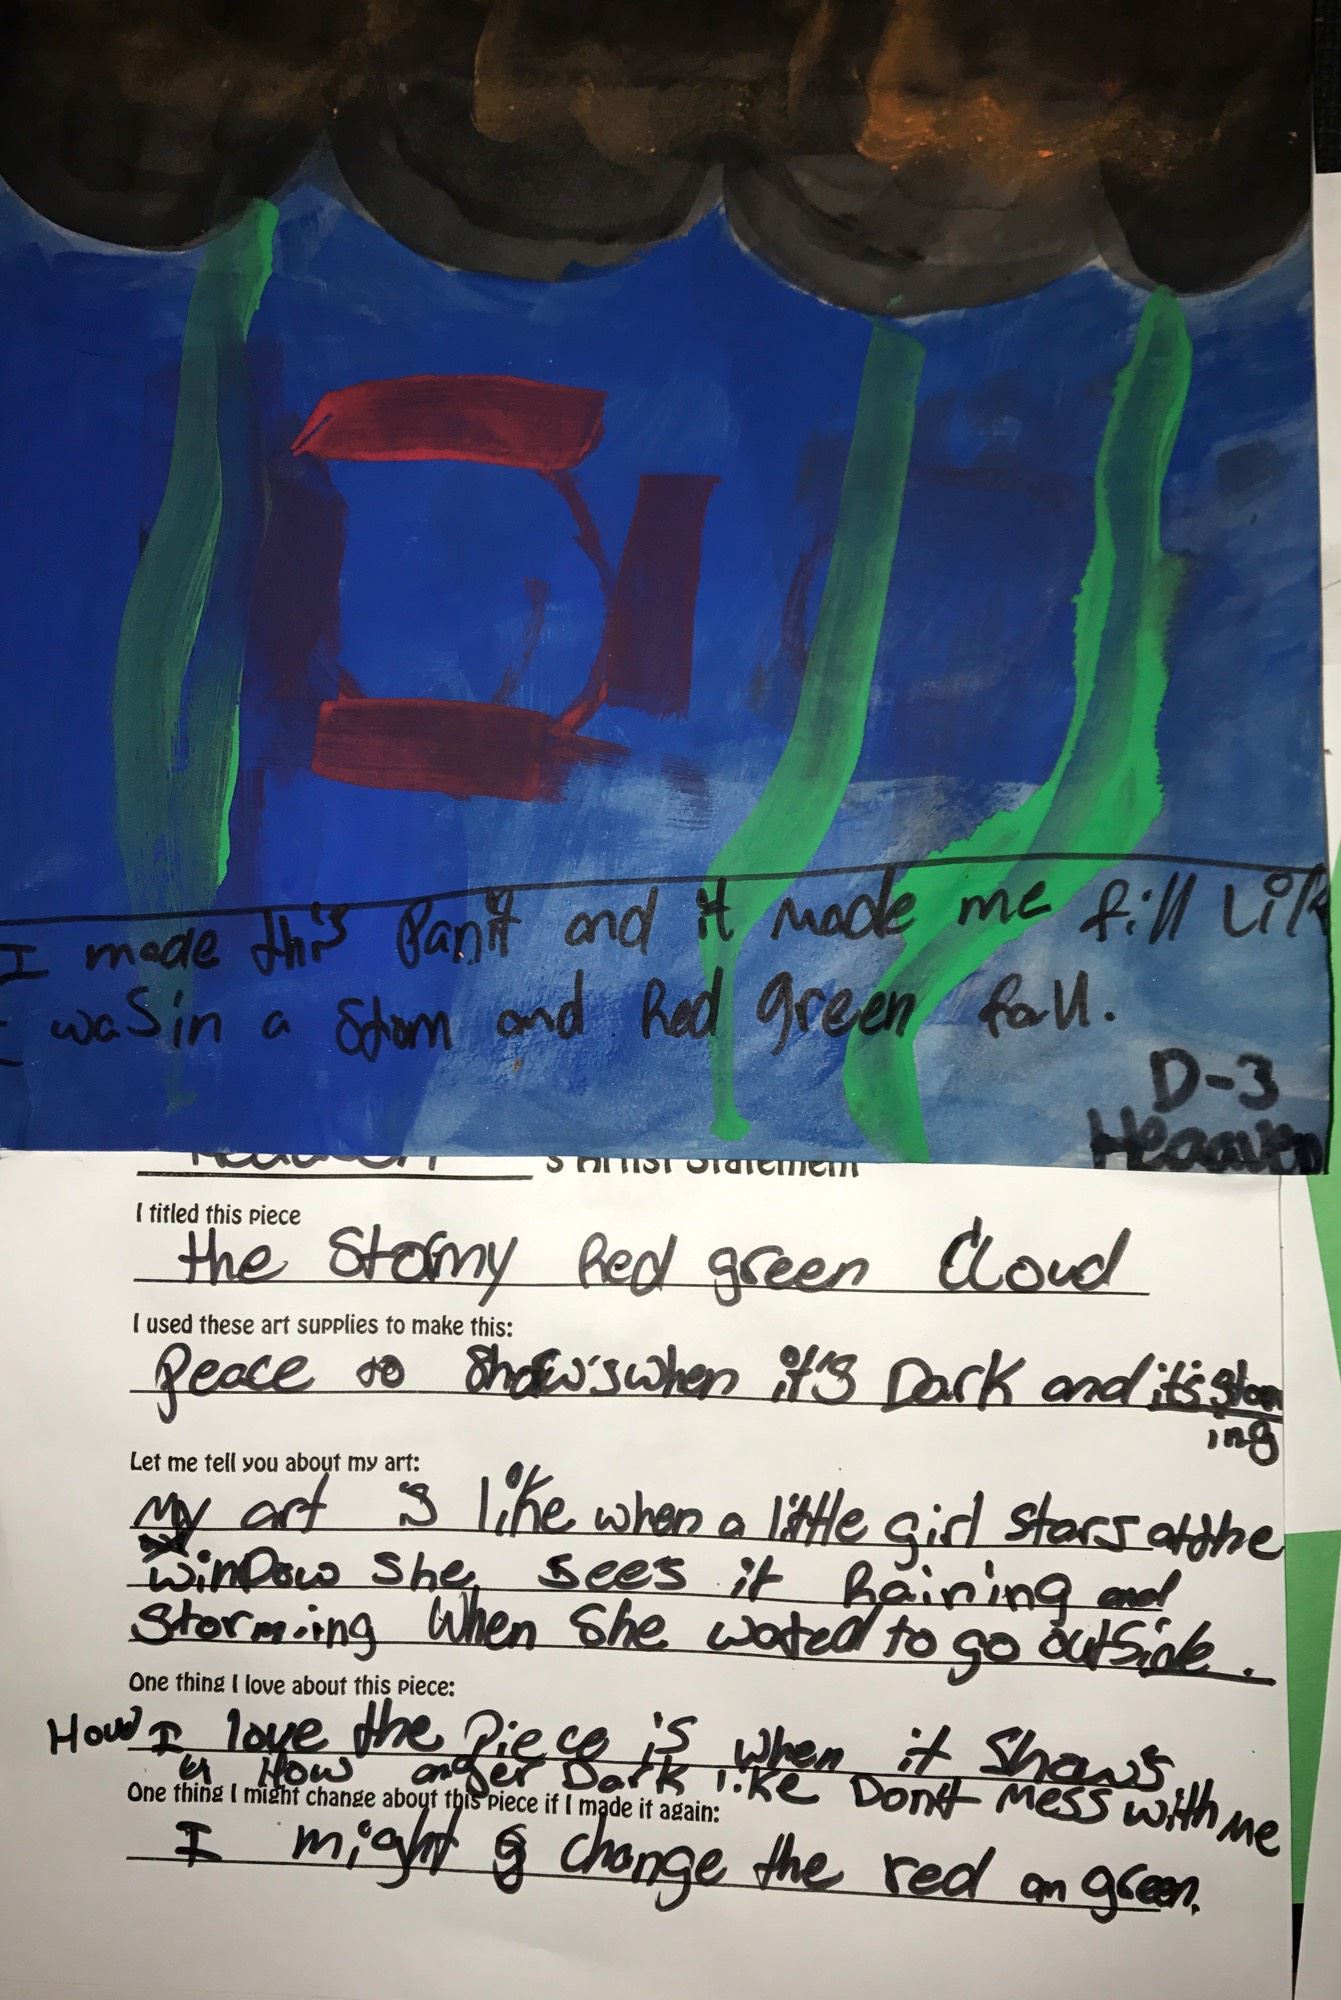 I made this Panit and it made me fill Lik
I was in a Stom and Red green fall.
D-3
Heaaven
's Artist Statement
I titled this piece
the Stormy Red green Cloud
I used these art supplies to make this:
Peace to Show's when it's Dark and it's stom
ing
Let me tell you about my art:
My art is like when a little girl stars at the
window she sees it Raining and
Storming When She wated to go outside.
One thing I love about this piece:
How I love the Piece is when it Shows
How anger Dark like Don't mess with me
One thing I might change about this piece if I made it again:
I might change the red an green.